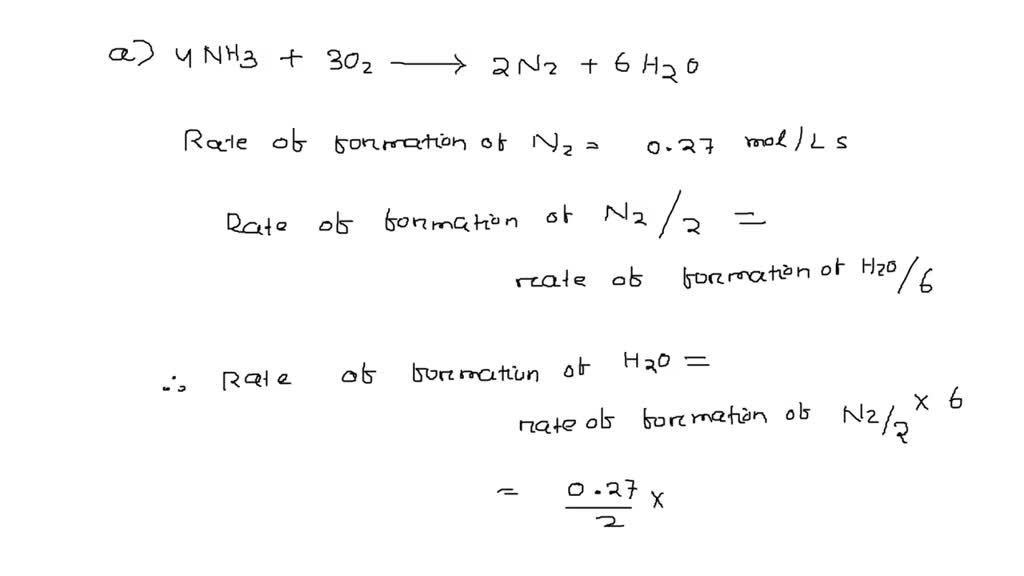 a) 4NH3 + 3O2 → 2N2 + 6H2O
Rate of formation of N2 = 0.27 mol/L s
Rate of formation of N2/2 =
rate of formation of H2O/6
∴ Rate of formation of H2O =
rate of formation of N2/2 × 6
= 0.27/2 ×